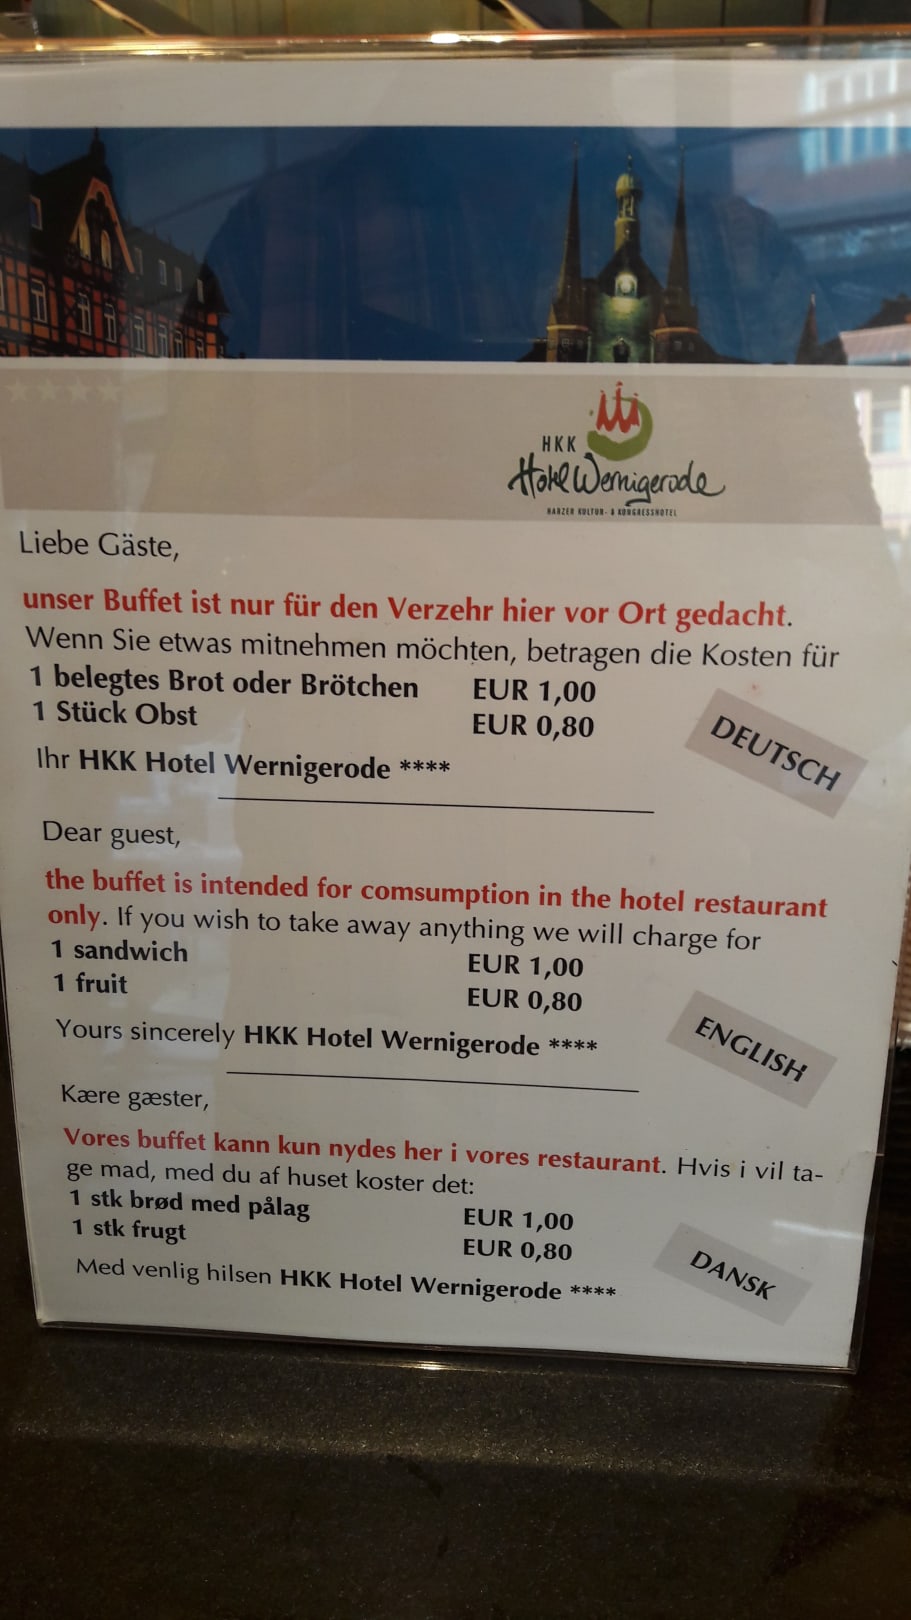 HKK
Hotel Wernigerode
HARZER KULTUR- & KONGRESSHOTEL
Liebe Gäste,
unser Buffet ist nur für den Verzehr hier vor Ort gedacht.
Wenn Sie etwas mitnehmen möchten, betragen die Kosten für
1 belegtes Brot oder Brötchen EUR 1,00
1 Stück Obst EUR 0,80
DEUTSCH
Ihr HKK Hotel Wernigerode ****
Dear guest,
the buffet is intended for comsumption in the hotel restaurant
only. If you wish to take away anything we will charge for
1 sandwich EUR 1,00
1 fruit EUR 0,80
ENGLISH
Yours sincerely HKK Hotel Wernigerode ****
Kære gæster,
Vores buffet kann kun nydes her i vores restaurant. Hvis i vil ta-
ge mad, med du af huset koster det:
1 stk brød med pålag EUR 1,00
1 stk frugt EUR 0,80
DANSK
Med venlig hilsen HKK Hotel Wernigerode ****